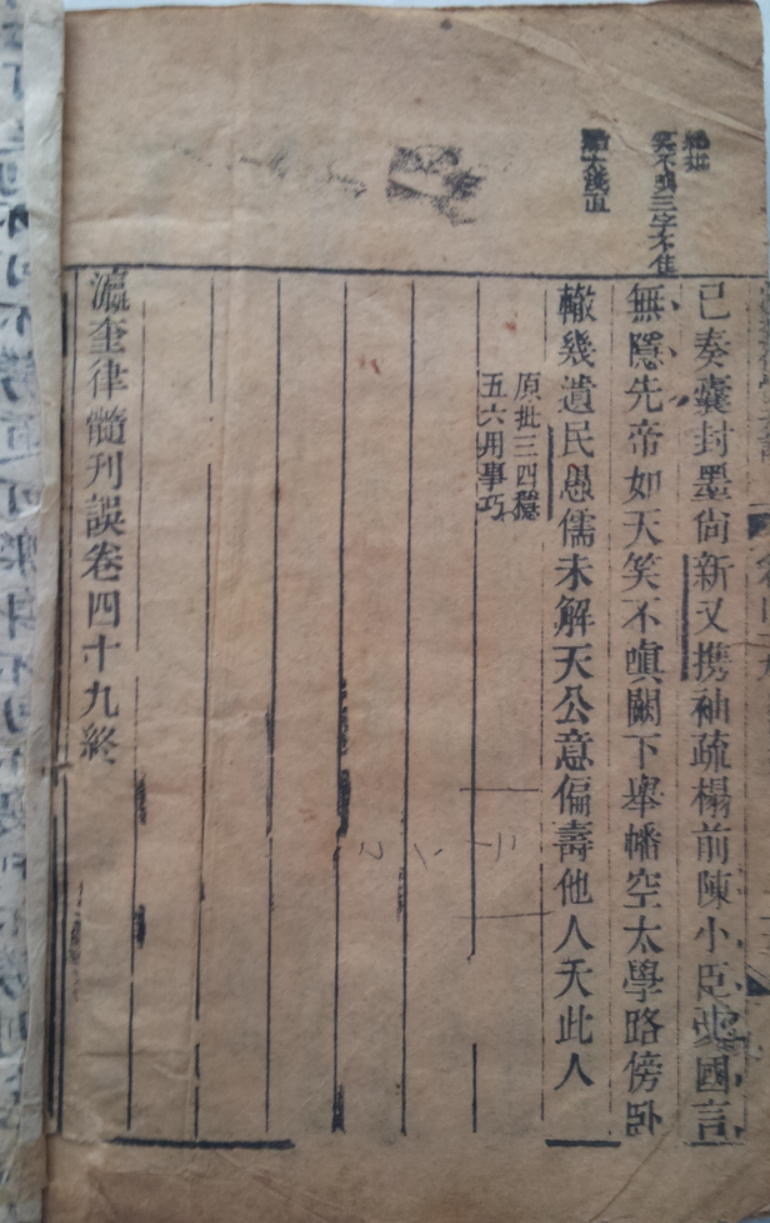 笑不嗔三字不佳
太淺直
已奏囊封墨尙新又携袖疏榻前陳小臣憂國言
無隱先帝如天笑不嗔闕下舉幡空太學路傍臥
轍幾遺民愚儒未解天公意偏壽他人夭此人
原批三四穩
五六用事巧
瀛奎律髓刊誤卷四十九終